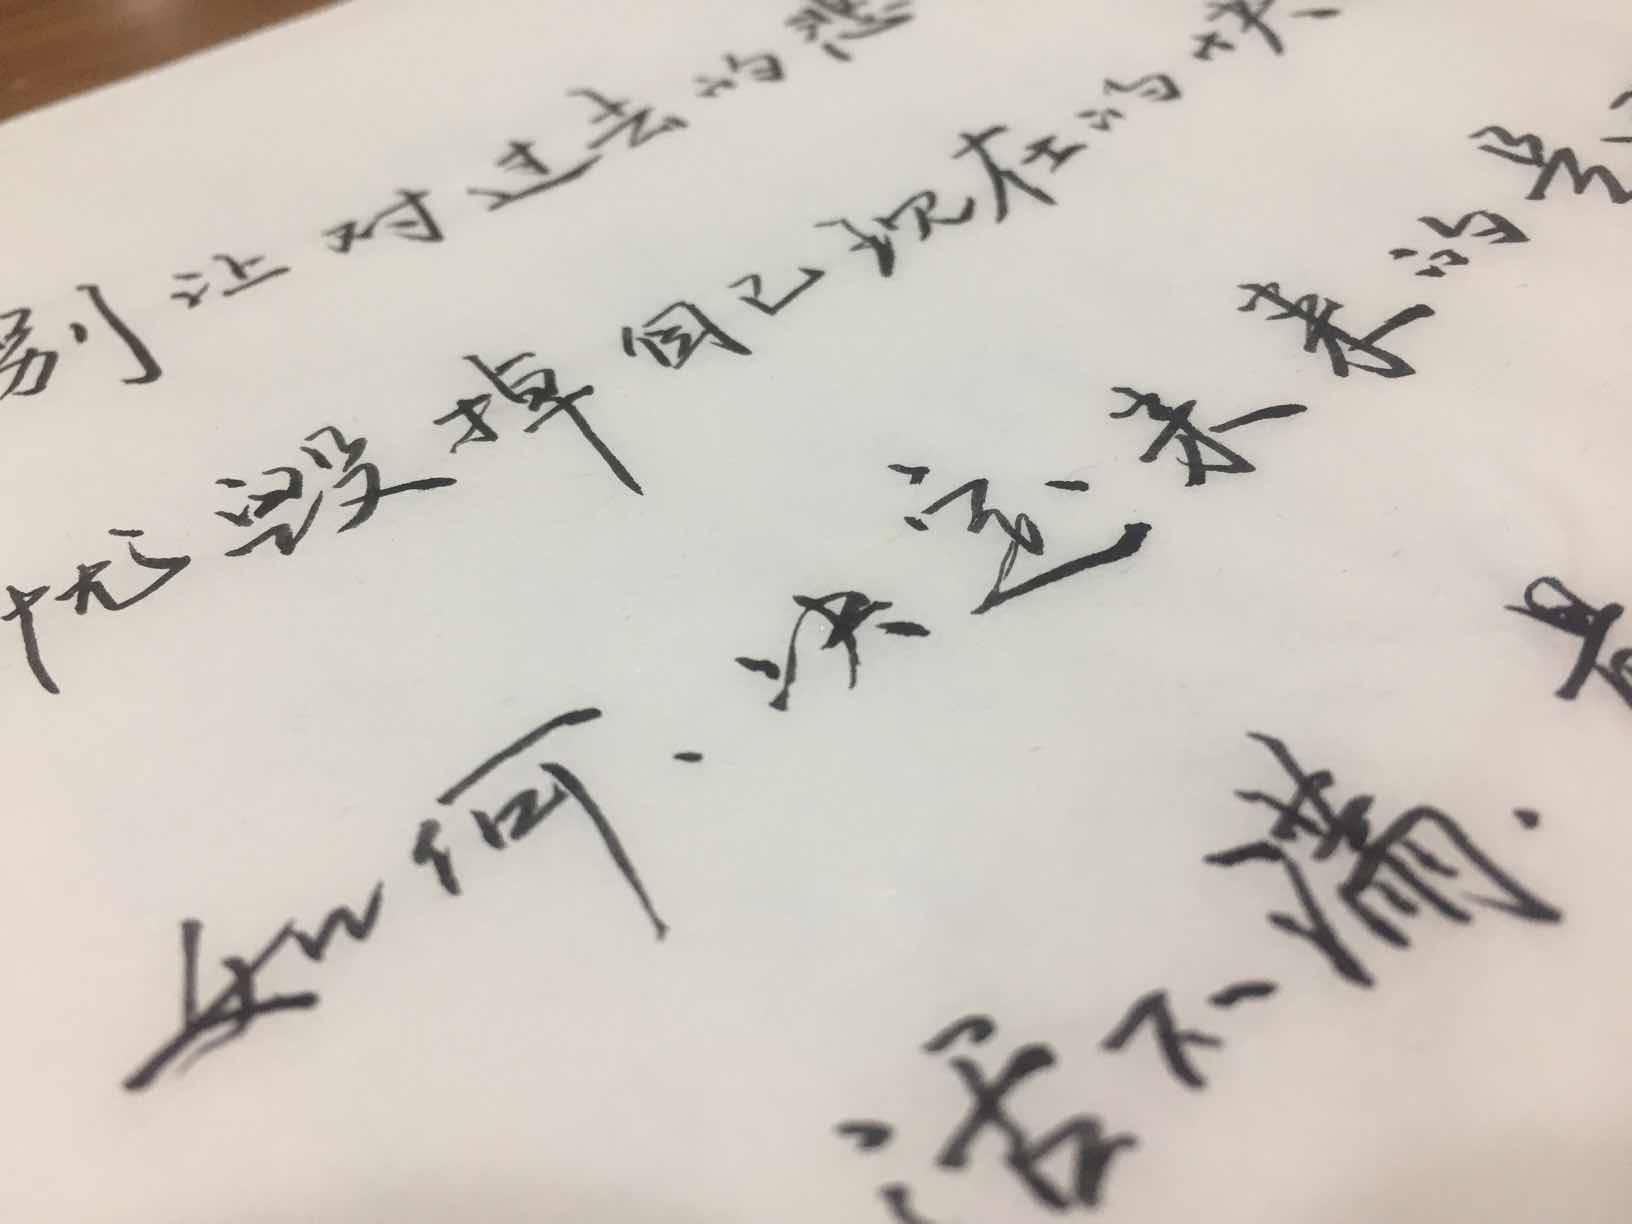 别让对过去的悲
忧毁掉自己现在的快
如何.决定未来的
活不满.